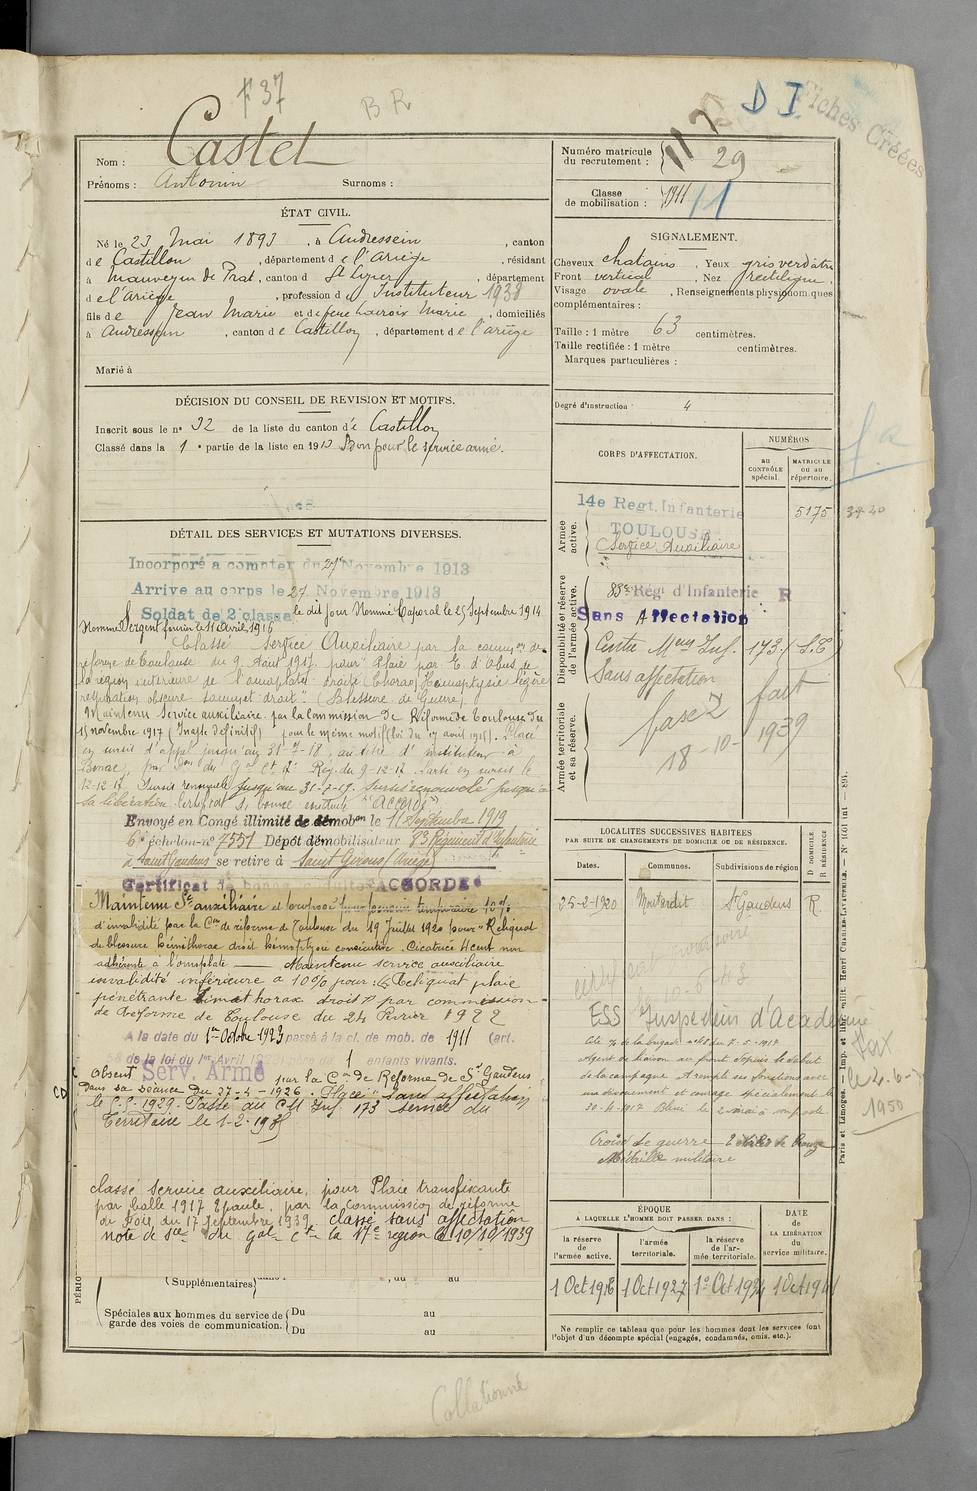 F 37
B R
D I
Fiches Créées
Nom : Castel
Prénoms : Antonin Surnoms :
Numéro matricule du recrutement : 29
Classe de mobilisation : 1911 11
ÉTAT CIVIL.
Né le 23 Mai 1893, à Audressein, canton
de Castillon, département de l'Ariège, résidant
à Mauvezin de Prat, canton d St Lizier, département
de l'Ariège, profession d' Instituteur 1938
fils de Jean Marie et de feue Marie, domiciliés
à Audressein, canton de Castillon, département de l'ariège
Marié à
SIGNALEMENT.
Cheveux chatains, Yeux gris verdâtre
Front vertical, Nez rectiligne,
Visage ovale, Renseignements physionomiques
complémentaires :
Taille : 1 mètre 63 centimètres.
Taille rectifiée : 1 mètre centimètres.
Marques particulières :
DÉCISION DU CONSEIL DE REVISION ET MOTIFS.
Inscrit sous le n° 32 de la liste du canton de Castillon
Classé dans la 1e partie de la liste en 1913 Bon pour le service armé.
Degré d'instruction : 4
CORPS D'AFFECTATION.
NUMÉROS
au CONTRÔLE spécial.
MATRICULE ou au répertoire.
Armée active.
14e Regt. Infanterie 5175
TOULOUSE
Service Auxiliaire
Disponibilité et réserve de l'armée active.
83e Rég. d'Infanterie R
Sans Affectation
Centre Mon Inf. 173 (S.T)
Sans affectation
Armée territoriale et sa réserve.
18-10-1939
DÉTAIL DES SERVICES ET MUTATIONS DIVERSES.
Incorporé à compter du 27 Novembre 1913
Arrivé au corps le 27 Novembre 1913
Soldat de 2e classe le dit jour Nommé Caporal le 25 Septembre 1914
Nommé Sergent fourrier le 11 Avril 1916
Classé Service Auxiliaire par la common de
réforme de Toulouse du 9 Aout 1917 pour "Plaie par E. d'Obus de
la région inférieure de l'omoplate droite (thorax) Hémoptysie légère
respiration obscure sommet droit" (Blessure de Guerre)
Maintenu Service auxiliaire par la Commission de Réforme de Toulouse du
15 novembre 1917 (Inapte définitif) pour le même motif (loi du 17 aout 1915). Placé
en sursis d'appel jusqu'au 31-7-18, au titre d'instituteur à
12-12-17 Sursis renouvelé jusqu'au 31-7-19. Sursis renouvelé jusqu'à
sa libération. Certificat de bonne conduite "Accordé"
Envoyé en Congé illimité de démobon le 11 Septembre 1919
6e échelon n° 7551 Dépôt démobilisateur 83 Régiment d'Infanterie
à Saint Gaudens se retire à Saint Girons (Ariège)
Certificat de bonne conduite ACCORDÉ
Maintenu Sce auxiliaire et proposé pour pension temporaire 10%
d'invalidité par la Con de réforme de Toulouse du 19 Juillet 1920 pour "Reliquat
de blessure hémithorax droit hémoptysie consécutive. Cicatrice 4 cent non
adhérente à l'omoplate — Maintenu service auxiliaire
invalidité inférieure à 10% pour : Reliquat plaie
pénétrante hémithorax droit" par commission
de Réforme de Toulouse du 24 Février 1922
A la date du 1er Octobre 1923 passé à la cl. de mob. de 1911 (art.
58 de la loi du 1er Avril 1923) père de 1 enfants vivants.
Absent Serv. Armé par la Con de Réforme de St Gaudens
dans sa séance du 27-4-1926. Placé "Sans affectation"
Passé au CM Inf 173 Service du
Territoire le 1-2-193
classé service auxiliaire, pour Plaie transfixante
par balle 1917 Epaule, par la Commission de réforme
de Foix, du 17 Septembre 1939 classé sans affectation
note de Sce du Gal Ct la 17e région du 10/10/1939
LOCALITÉS SUCCESSIVES HABITÉES
PAR SUITE DE CHANGEMENTS DE DOMICILE OU DE RÉSIDENCE.
Dates. Communes. Subdivisions de région D DOMICILE R RÉSIDENCE
25-2-1920 Montardit St Gaudens R.
ESS Inspection d'Académie
Foix
le 2-6-
1950
Cité à de la brigade n° 48 du 7-5-1917
Agent de liaison au front depuis le début
de la campagne A rempli ses fonctions avec
un dévouement et courage spécialement le
30-4-1917 Blessé le 2 mai à son poste
Croix de guerre 2 étoiles de bronze
Médaille militaire
ÉPOQUE
A LAQUELLE L'HOMME DOIT PASSER DANS :
la réserve de l'armée active.
l'armée territoriale.
la réserve de l'armée territoriale.
DATE de LA LIBÉRATION du service militaire.
1 Oct 1916 1 Oct 1927 1er Oct 1934 1 Oct 1941
Ne remplir ce tableau que pour les hommes dont les services font
l'objet d'un décompte spécial (engagés, condamnés, omis, etc.).
(Supplémentaires , du au
Spéciales aux hommes du service de garde des voies de communication.
Du au
Du au
PÉRIO
Paris et Limoges. — Imp. et lib. milit. Henri CHARLES-LAVAUZELLE.
Collationné